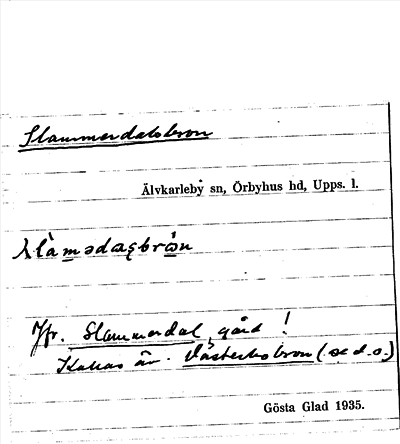 Slammerdalsbron
Älvkarleby sn, Örbyhus hd, Upps. l.
Jfr. Slammerdal, gård!
Kallas äv. Västerbobron (se d.o.)
Gösta Glad 1935.